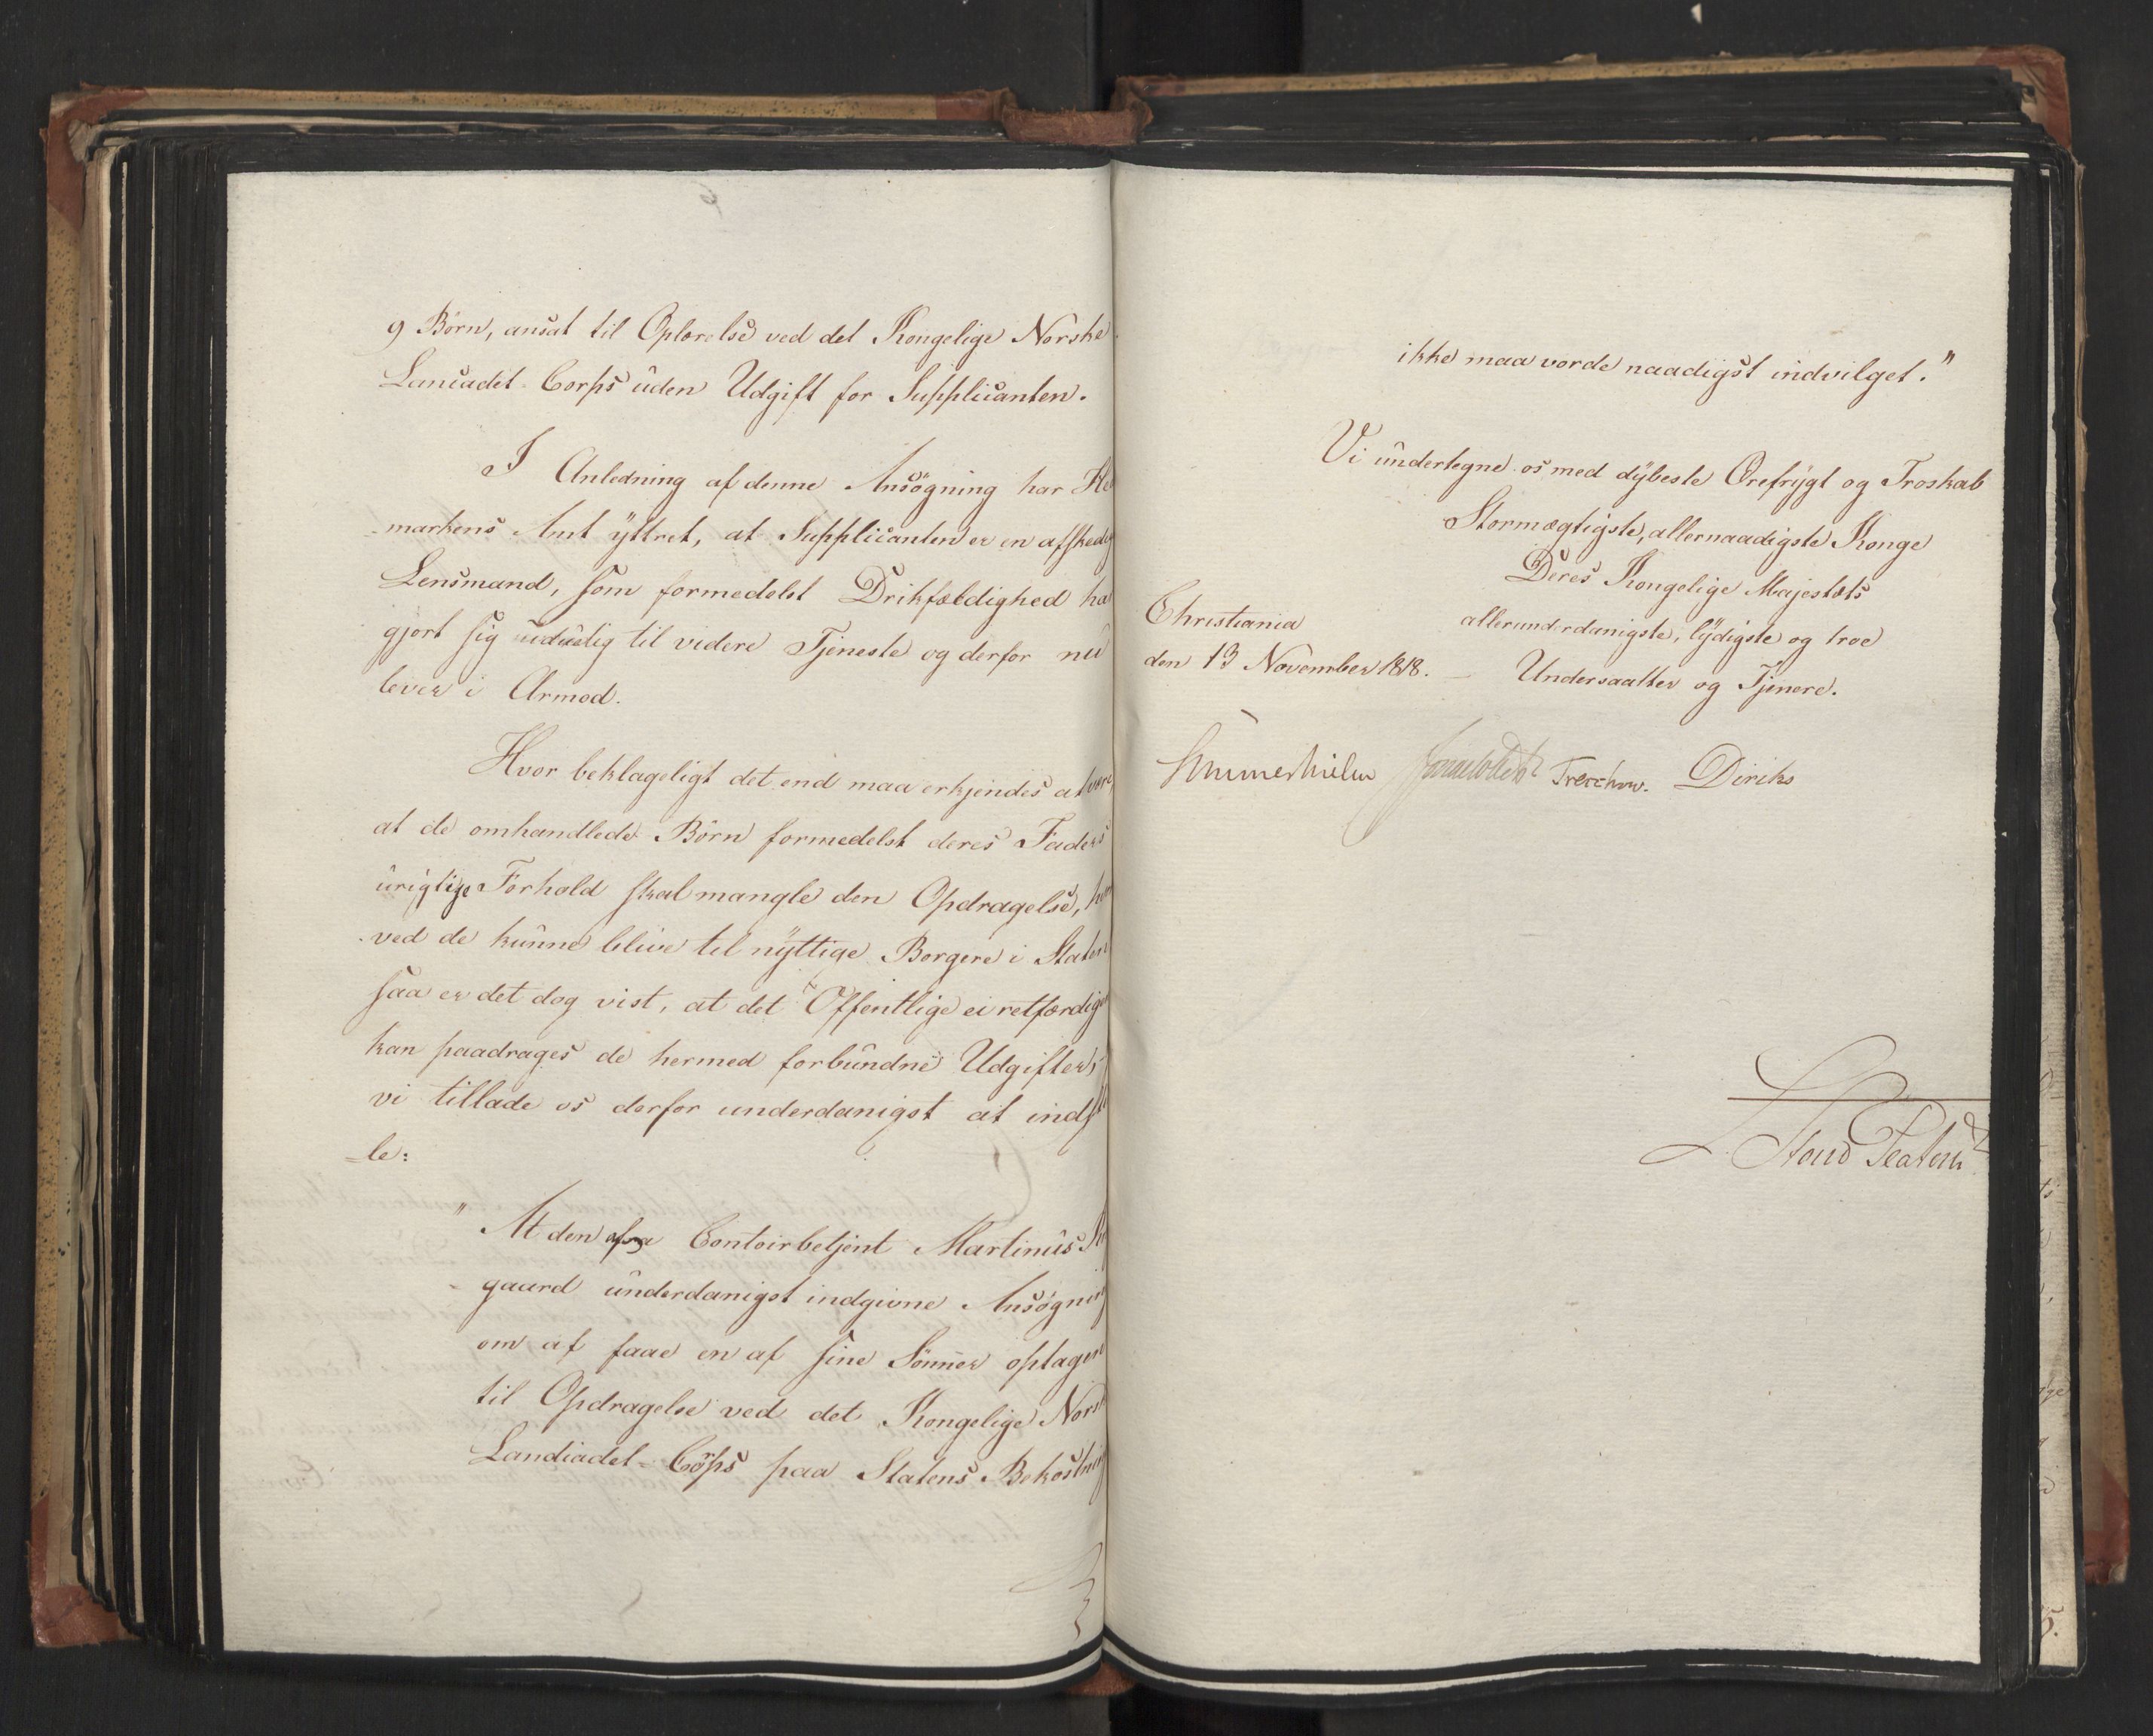 9 Børn, ansat til Oplærelse ved det Kongelige Norske
Lancadet-Corps uden Udgift for Supplicanten.
I Anledning af denne Ansøgning har He
-markens Amt yttret, at Supplicanten er en afskedig
Lensmand, som formedelst Drikfældighed ha
gjort sig uduelig til videre Tjeneste og derfor nu
lever i Armod.
Hvor beklageligt det end maa erkjendes at være
at de omhandlede Børn formedelst deres Faders
urigtige Forhold skal mangle den Opdragelse, hvor
-ved de kunne blive til nyttige Borgere i Staten
saa er det dog vist, at det Offentlige ei retfærdigen
kan paadrages de hermed forbundne Udgifter,
vi tillade os derfor underdanigst at indstil
-le:
"At den af Contoirbetjent Martinus
-gaard underdanigst indgivne Ansøgning
om at faae en af sine Sønner optagen
til Opdragelse ved det Kongelige Norsk
Landcadet-Corps paa Statens Bekostning
ikke maa vorde naadigst indvilget."
Vi undertegne os med dybeste Ærefrygt og Troskab
Stormægtigste, allernaadigste Konge
Deres Kongelige Majestæts
allerunderdanigste, lydigste og troe
Undersaatter og Tjenere.
Christiania
den 13 November 1818.
Sommerhielm Treschow. Diriks